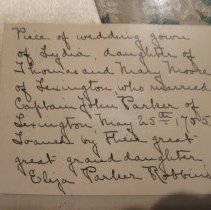 Piece of wedding gown
of Lydia, daughter of
Thomas and Mary Moore
of Lexington, who married
Captain John Parker of
Lexington, May 25th 1755.
Loaned by their great
great granddaughter,
Eliza Parker Robbins